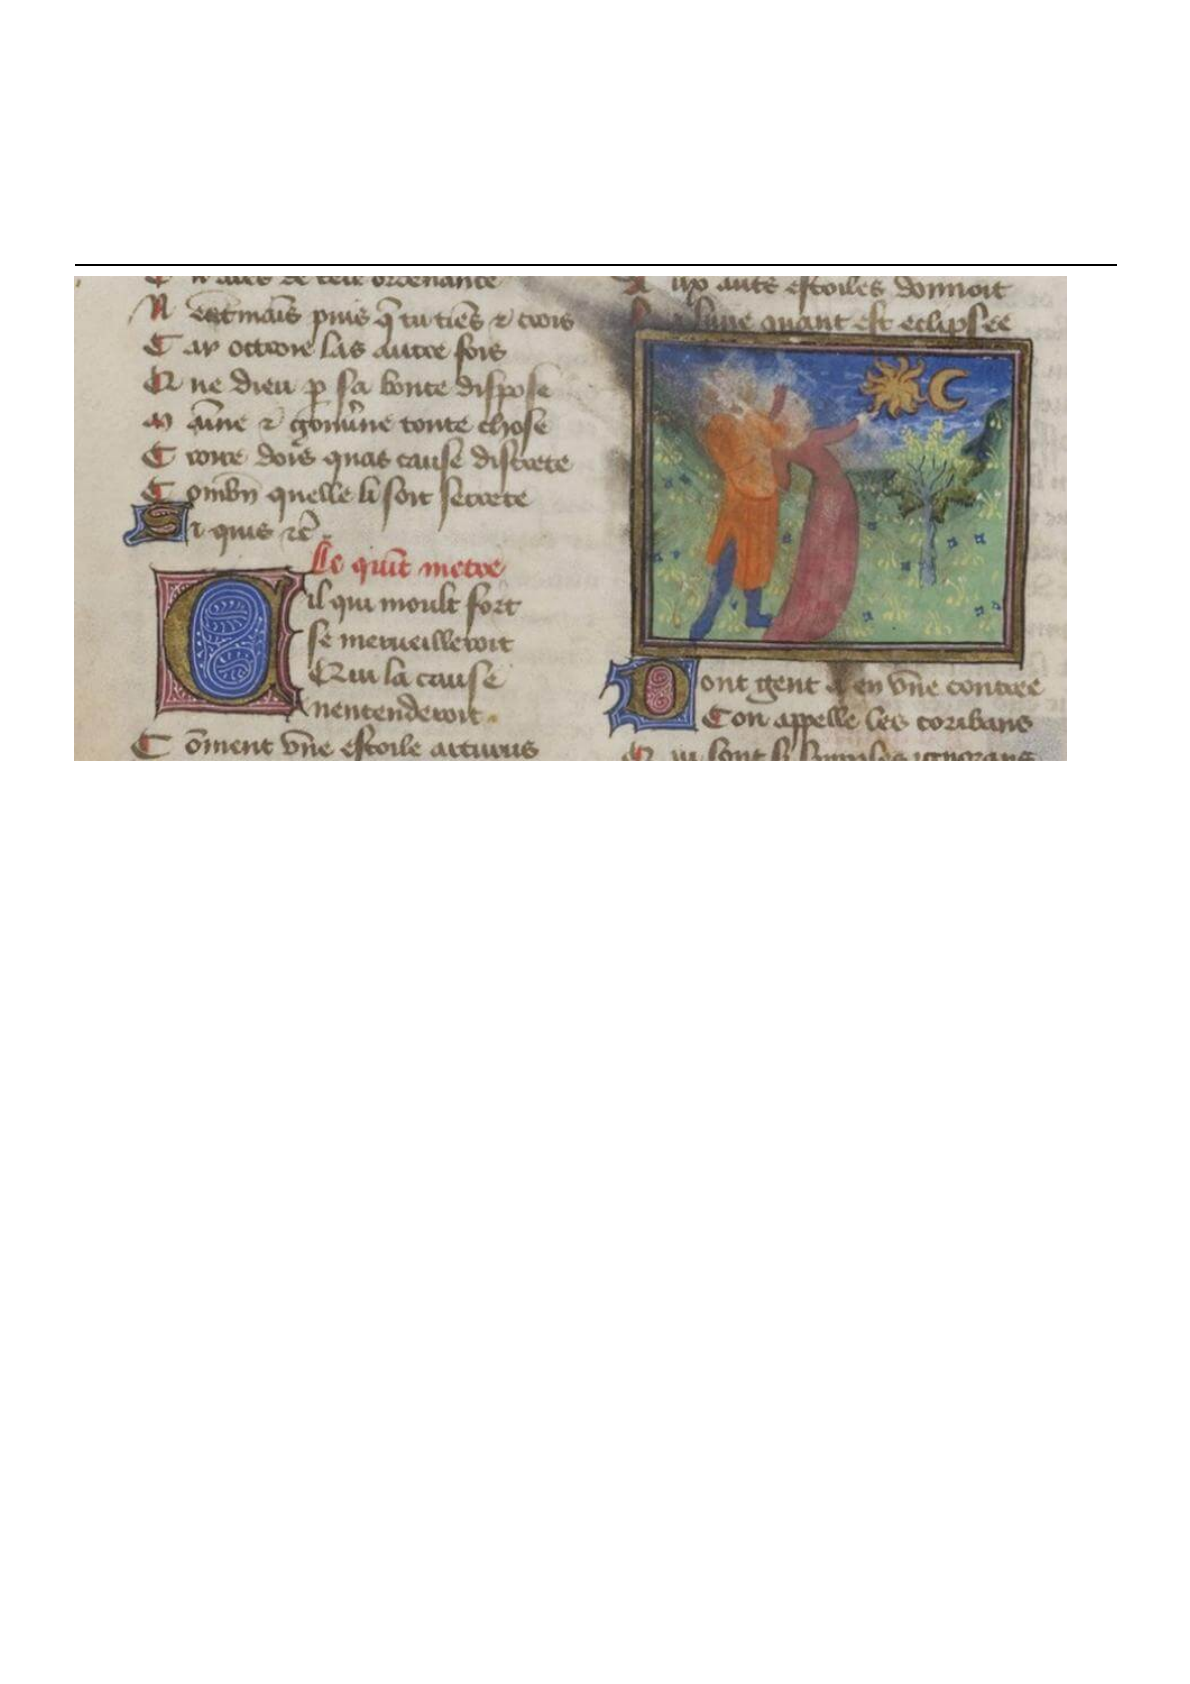 N est mais puis q̃ tu tiēs ⁊ crois
Car octroie las autre fois
Que dieu ꝑ sa bonte dispose
Maine ⁊ gouũne toute chose
Croire dois quas cause discrete
Combñ quelle li soit secrete
Si quis ⁊c̃
Le quīt metre
Cil qui moult fort
se merueilleroit
Qui la cause
nentenderoit
Cōment vne estoile arturus
Aux autˢ estoiles donnoit
lune quant est eclipsee
Dont gent a en vne contree
Con appelle les coribans
Qui sont si simples ignorans